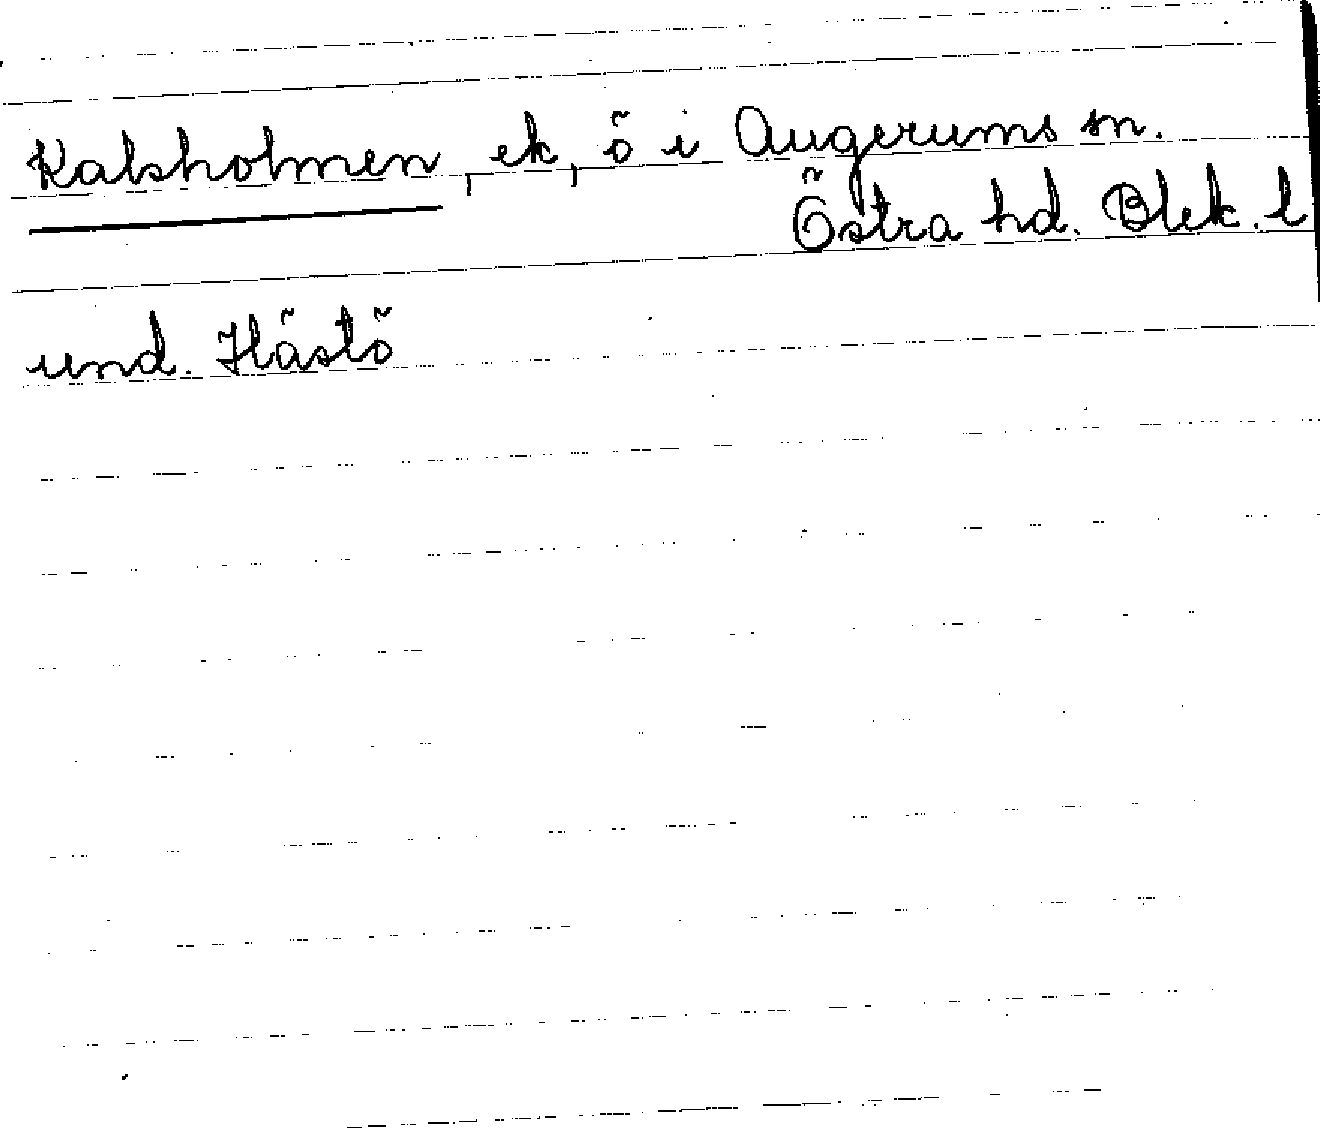 Kalsholmen, ek, ö i Augerums sn.
Östra hd. Blek. l
und. Hästö